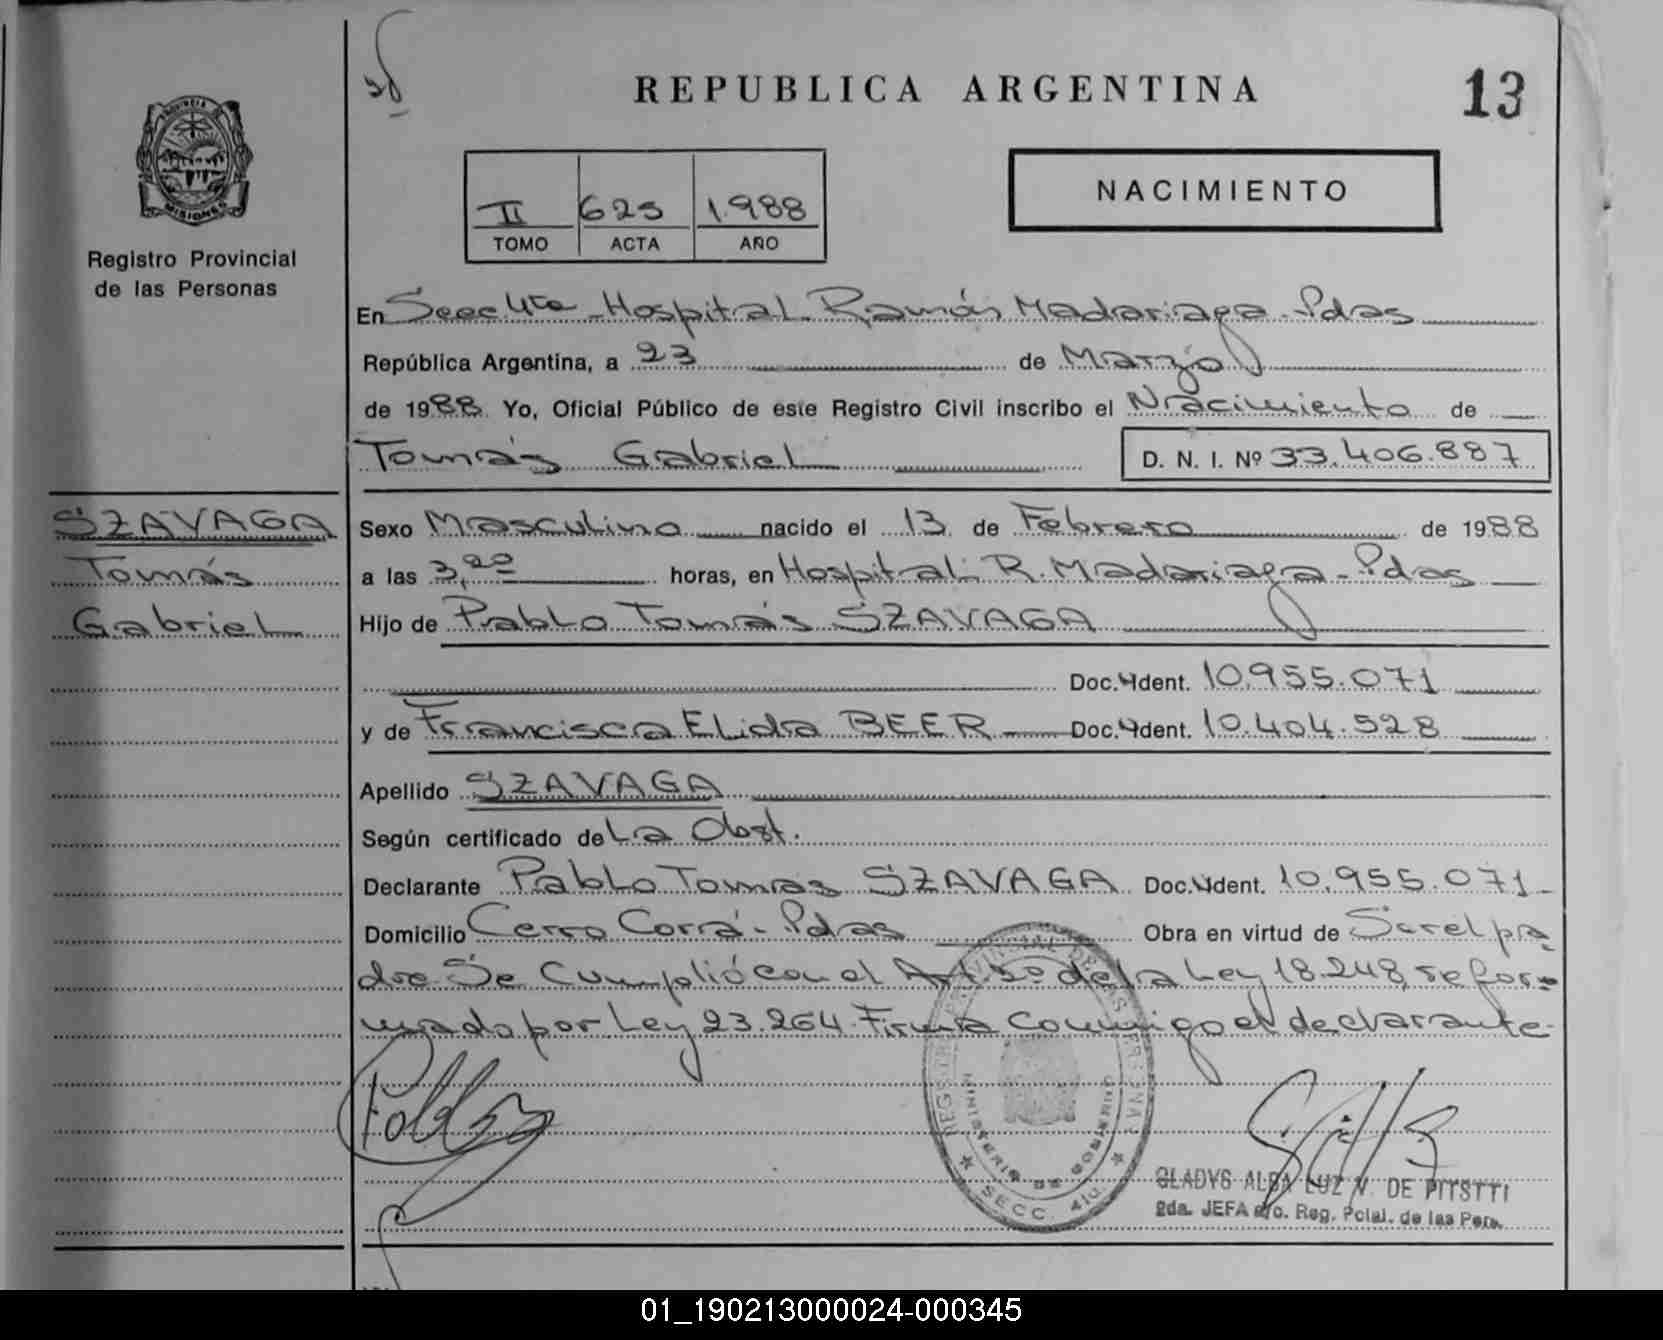 REPUBLICA ARGENTINA
13
PROVINCIA
MISIONES
Registro Provincial
de las Personas
NACIMIENTO
II 625 1.988
TOMO ACTA AÑO
En Secc 4ta - Hospital Ramón Madariaga - Pdas
República Argentina, a 23 de Marzo
de 1988 Yo, Oficial Público de este Registro Civil inscribo el Nacimiento de
Tomás Gabriel D. N. I. Nº 33.406.887
SZAVAGA
Tomás
Gabriel
Sexo Masculino nacido el 13 de Febrero de 1988
a las 3,20 horas, en Hospital R. Madariaga - Pdas
Hijo de Pablo Tomás SZAVAGA
Doc. Ident. 10.955.071
y de Francisca Elida BEER Doc. Ident. 10.404.528
Apellido SZAVAGA
Según certificado de La Obst.
Declarante Pablo Tomas SZAVAGA Doc. Ident. 10.955.071
Domicilio Cerro Corá - Pdas Obra en virtud de Ser el pa
dre Se Cumplió con el Art. de la Ley 18.248, refor=
mado por Ley 23.264. Firma conmigo el declarante.
REGISTRO PROVINCIAL DE LAS PERSONAS
MINISTERIO DE GOBIERNO
SECC. 4ta.
GLADYS ALBA LUZ V. DE PITSTTI
2da. JEFA a/c. Reg. Pcial. de las Pers.
01_190213000024-000345